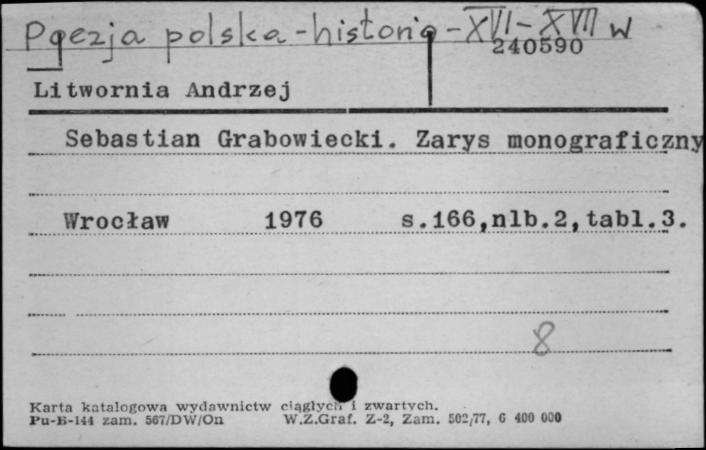 Poezja polska - historia - XVI - XVII w
240590
Litwornia Andrzej
Sebastian Grabowiecki. Zarys monograficzny
Wrocław 1976 s.166,nlb.2,tabl.3.
8
Karta katalogowa wydawnictw ciągłych i zwartych.
Pu-B-144 zam. 567/DW/On W.Z.Graf. Z-2, Zam. 502/77, 6 400 000